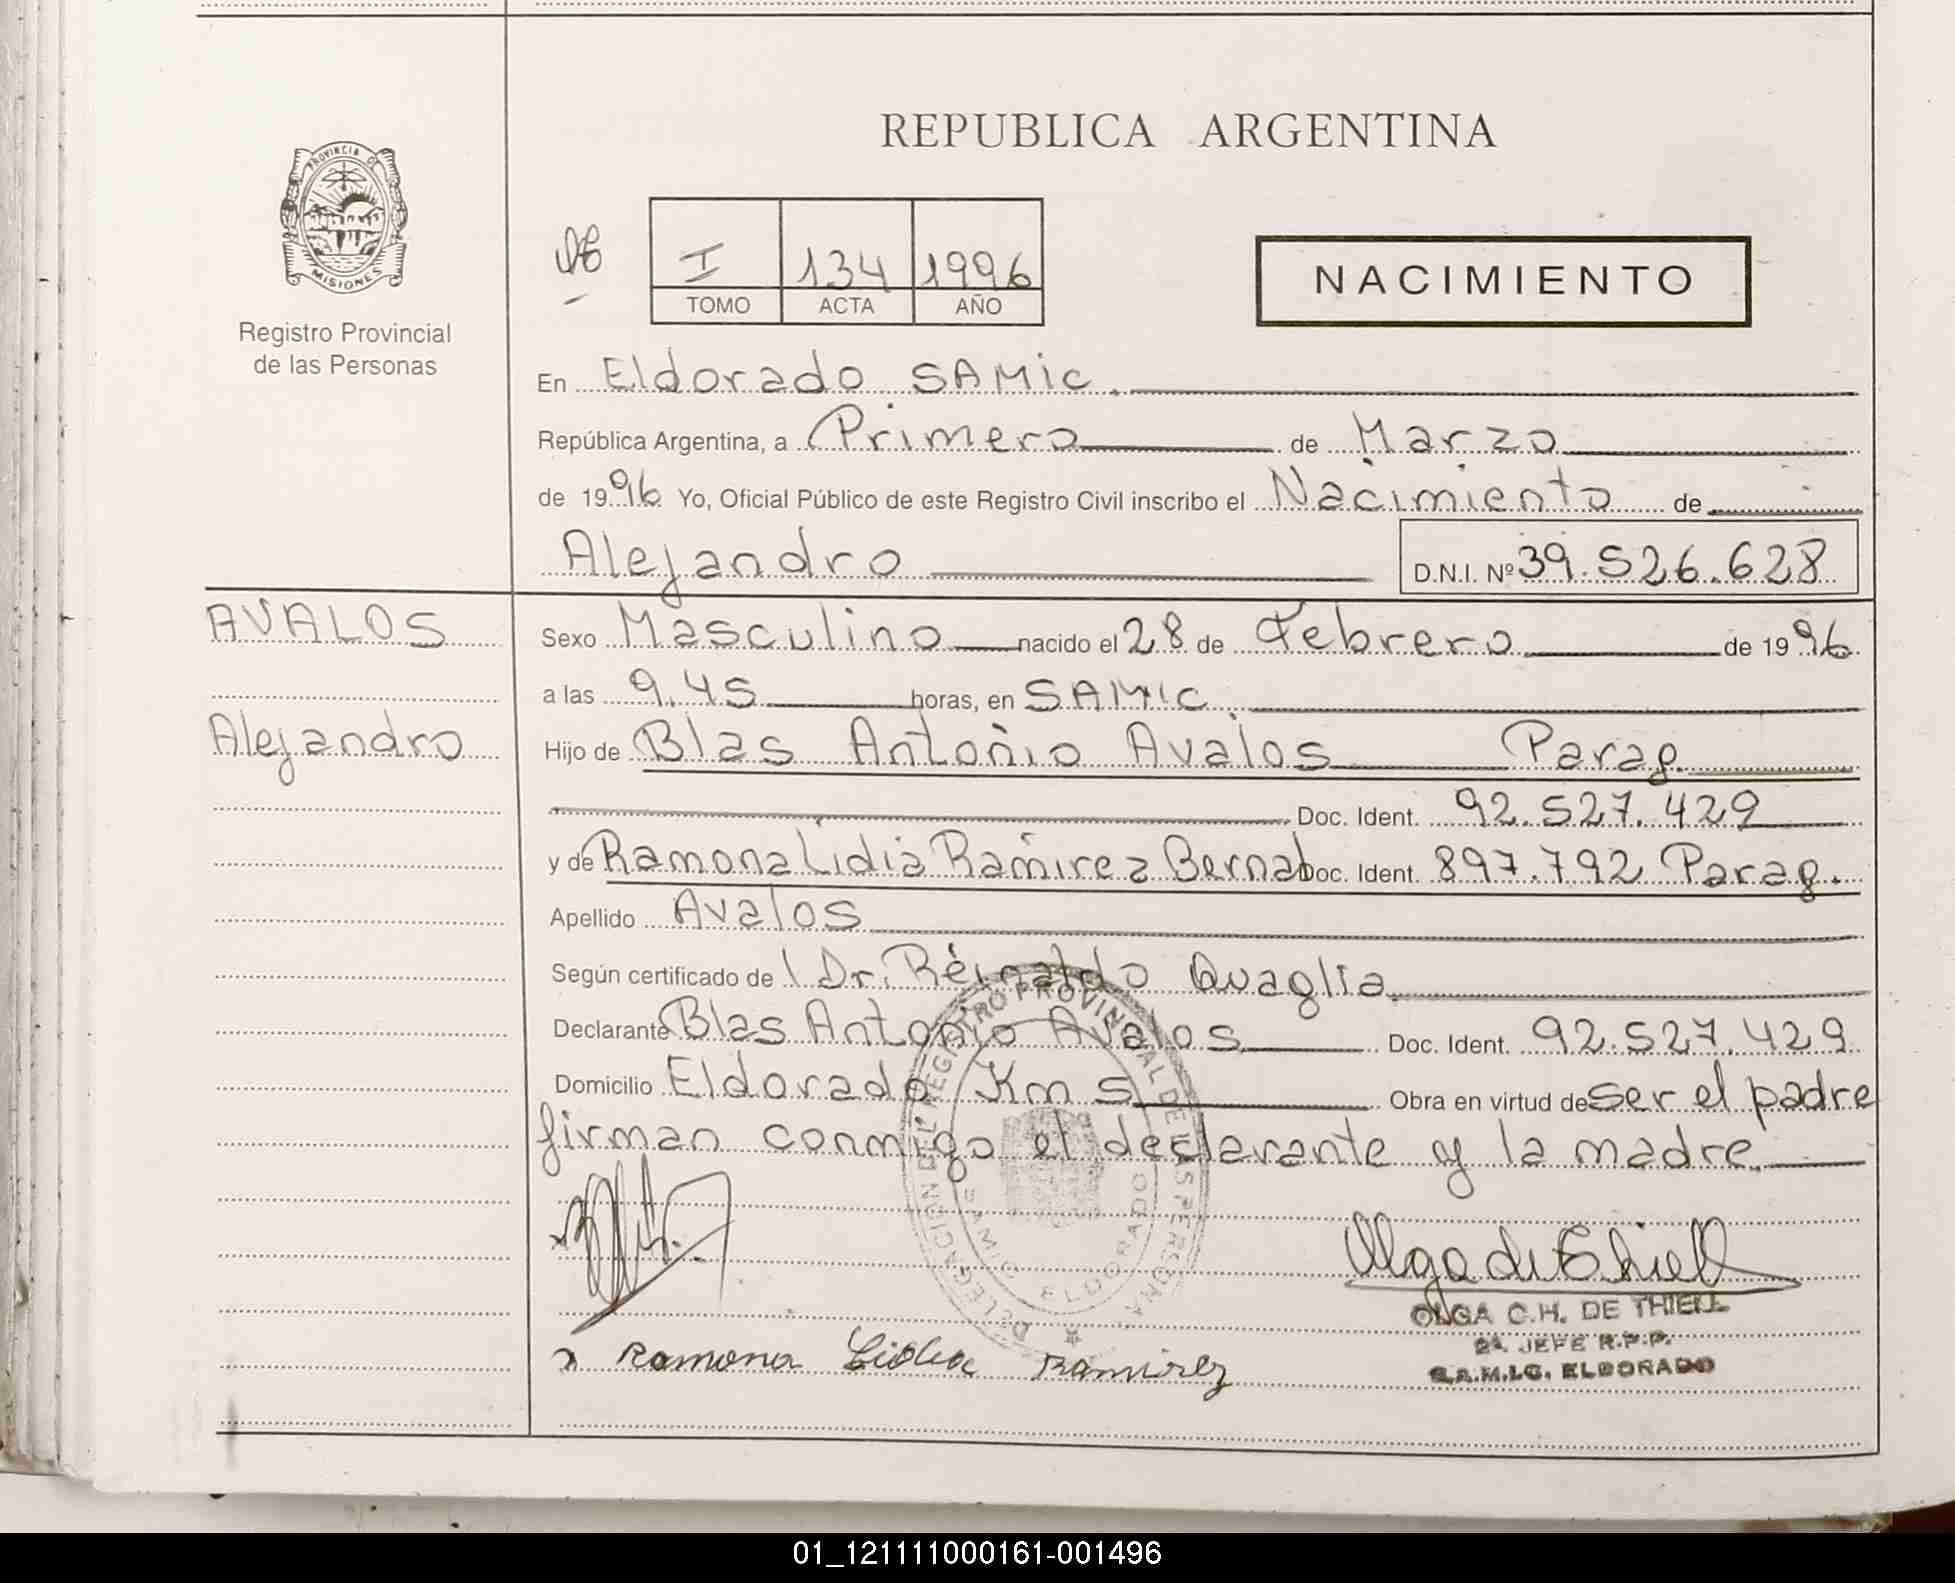 REPUBLICA ARGENTINA
PROVINCIA DE
MISIONES
Registro Provincial
de las Personas
I 134 1996
TOMO ACTA AÑO
NACIMIENTO
En Eldorado SAMIC.
República Argentina, a Primero de Marzo
de 1996 Yo, Oficial Público de este Registro Civil inscribo el Nacimiento de
Alejandro D.N.I. Nº 39.526.628
AVALOS
Alejandro
Sexo Masculino nacido el 28 de Febrero de 1996
a las 9.45 horas, en SAMIC
Hijo de Blas Antonio Avalos Parag.
Doc. Ident. 92.527.429
y de Ramona Lidia Ramirez Bernal Doc. Ident. 897.792 Parag.
Apellido Avalos
Según certificado de Dr. Reinaldo Quaglia
Declarante Blas Antonio Avalos Doc. Ident. 92.527.429
Domicilio Eldorado Km 5 Obra en virtud de ser el padre
firman conmigo el declarante y la madre.
DELEGACION DEL REGISTRO PROVINCIAL DE LAS PERSONAS
SAMIC ELDORADO
Olga de Thiell
OLGA C.H. DE THIELL
2ª JEFE R.P.P.
S.A.M.I.C. ELDORADO
x Ramona Lidia Ramirez
01_121111000161-001496